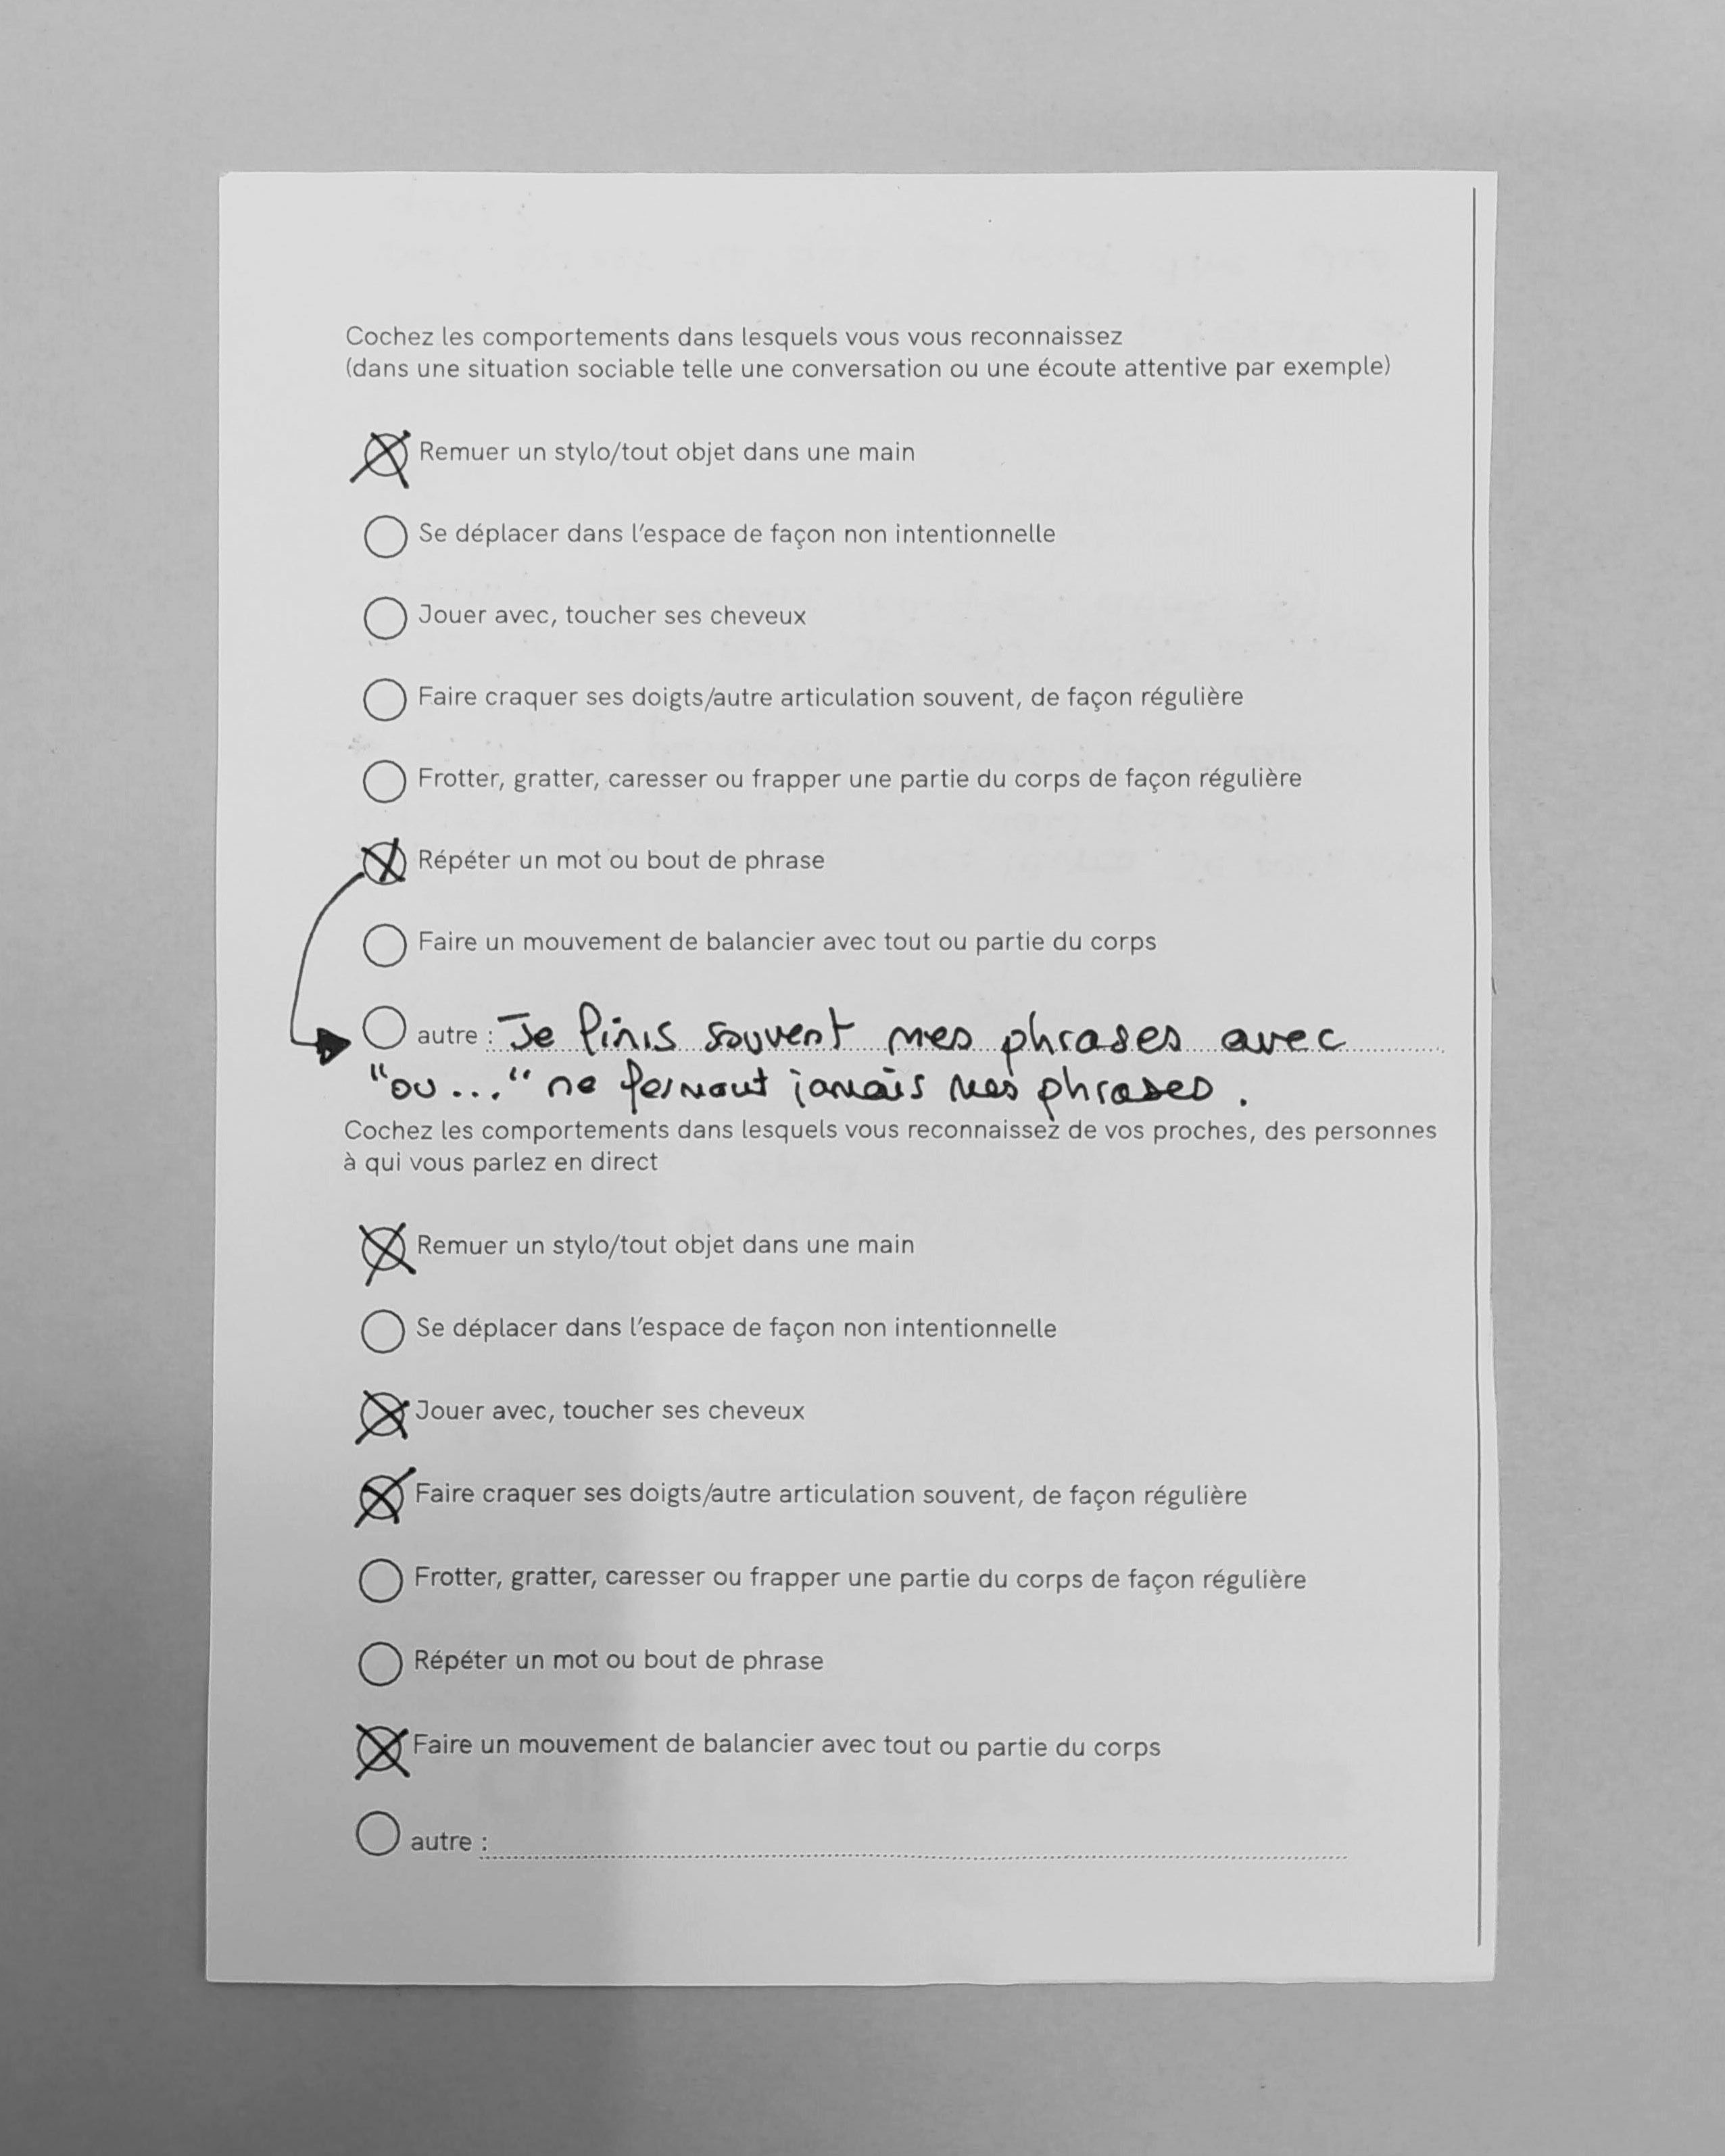 Cochez les comportements dans lesquels vous vous reconnaissez
(dans une situation sociable telle une conversation ou une écoute attentive par exemple)
Remuer un stylo/tout objet dans une main
Se déplacer dans l'espace de façon non intentionnelle
Jouer avec, toucher ses cheveux
Faire craquer ses doigts/autre articulation souvent, de façon régulière
Frotter, gratter, caresser ou frapper une partie du corps de façon régulière
Répéter un mot ou bout de phrase
Faire un mouvement de balancier avec tout ou partie du corps
autre : Je finis souvent mes phrases avec
"ou..." ne fermant jamais mes phrases.
Cochez les comportements dans lesquels vous reconnaissez de vos proches, des personnes
à qui vous parlez en direct
Remuer un stylo/tout objet dans une main
Se déplacer dans l'espace de façon non intentionnelle
Jouer avec, toucher ses cheveux
Faire craquer ses doigts/autre articulation souvent, de façon régulière
Frotter, gratter, caresser ou frapper une partie du corps de façon régulière
Répéter un mot ou bout de phrase
Faire un mouvement de balancier avec tout ou partie du corps
autre :